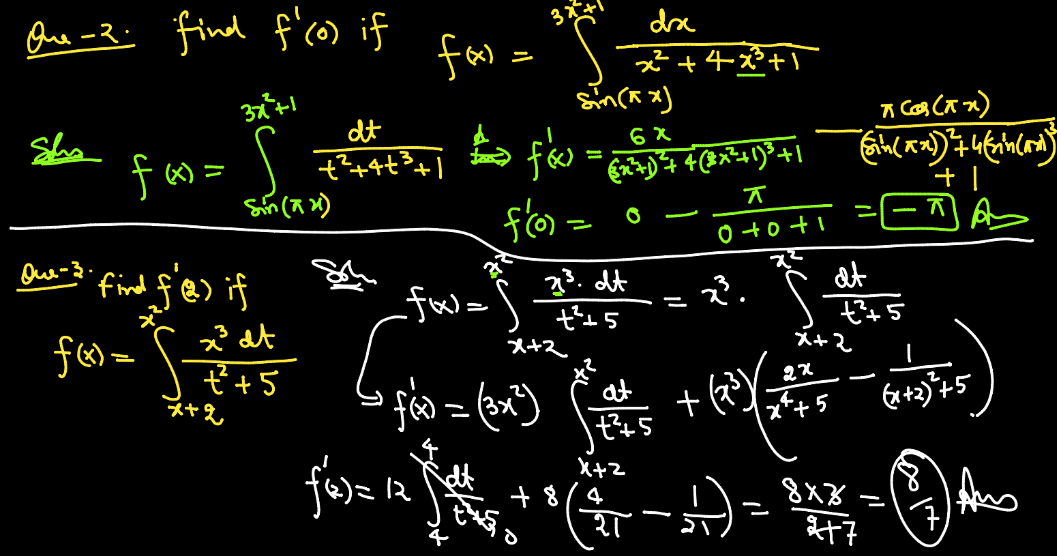 Que-2. find f'(0) if f(x) = ∫_{sin(πx)}^{3x²+1} dx/(x² + 4x³ + 1)
Soln f(x) = ∫_{sin(πx)}^{3x²+1} dt/(t² + 4t³ + 1) ⇒ f'(x) = 6x/((3x²+1)² + 4(3x²+1)³ + 1) − π cos(πx)/((sin(πx))² + 4(sin(πx))³ + 1)
f'(0) = 0 − π/(0+0+1) = −π Ans
Que-3. find f'(2) if
f(x) = ∫_{x+2}^{x²} x³ dt/(t² + 5)
Soln f(x) = ∫_{x+2}^{x²} x³. dt/(t² + 5) = x³. ∫_{x+2}^{x²} dt/(t² + 5)
f'(x) = (3x²) ∫_{x+2}^{x²} dt/(t² + 5) + (x³)(2x/(x⁴ + 5) − 1/((x+2)² + 5))
f'(2) = 12 ∫_{4}^{4} dt/(t² + 5) 0 + 8(4/21 − 1/21) = 8×3/(3×7) = 8/7 Ans